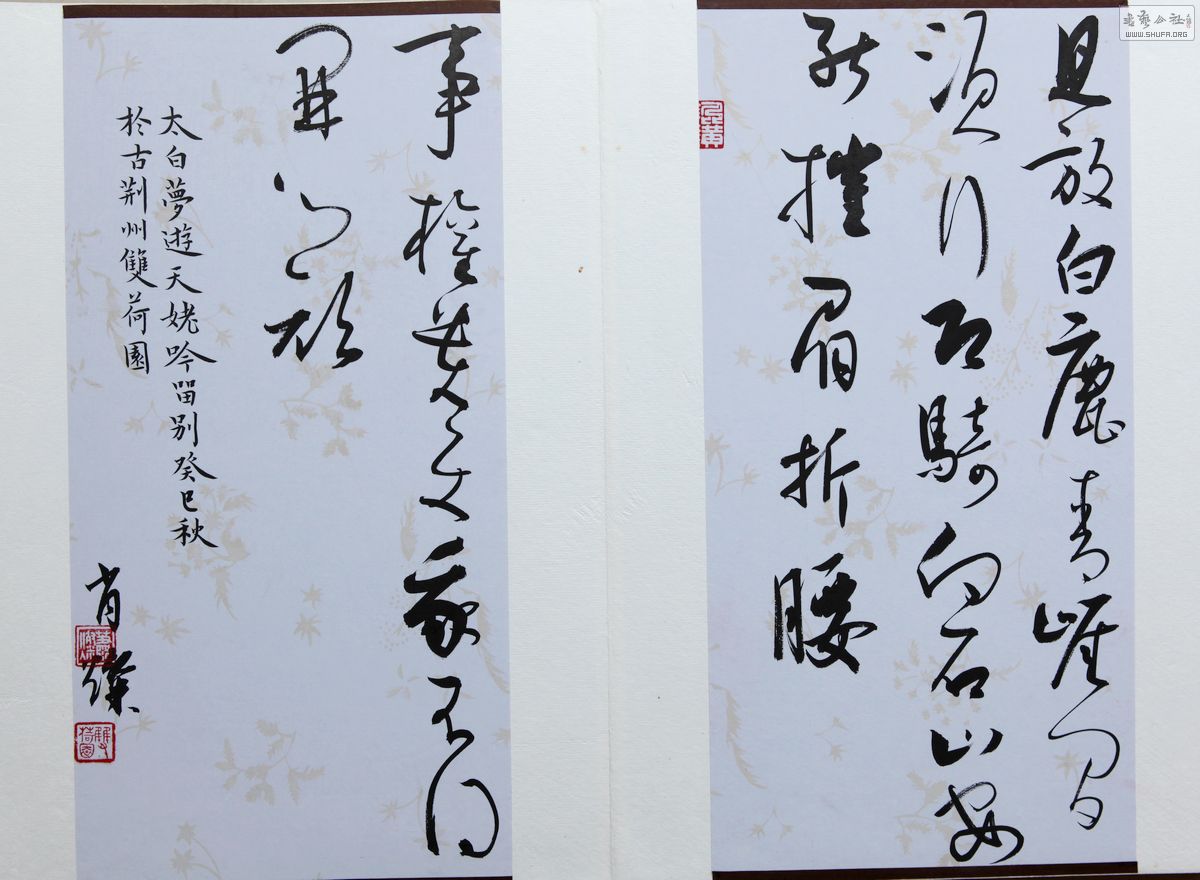 書藝公社
WWW.SHUFA.ORG
且放白鹿青崖間
須行即騎向名山安
能摧眉折腰
事權貴使我不得
開心顏
太白夢遊天姥吟畱別癸巳秋
於古荆州雙荷園
肖